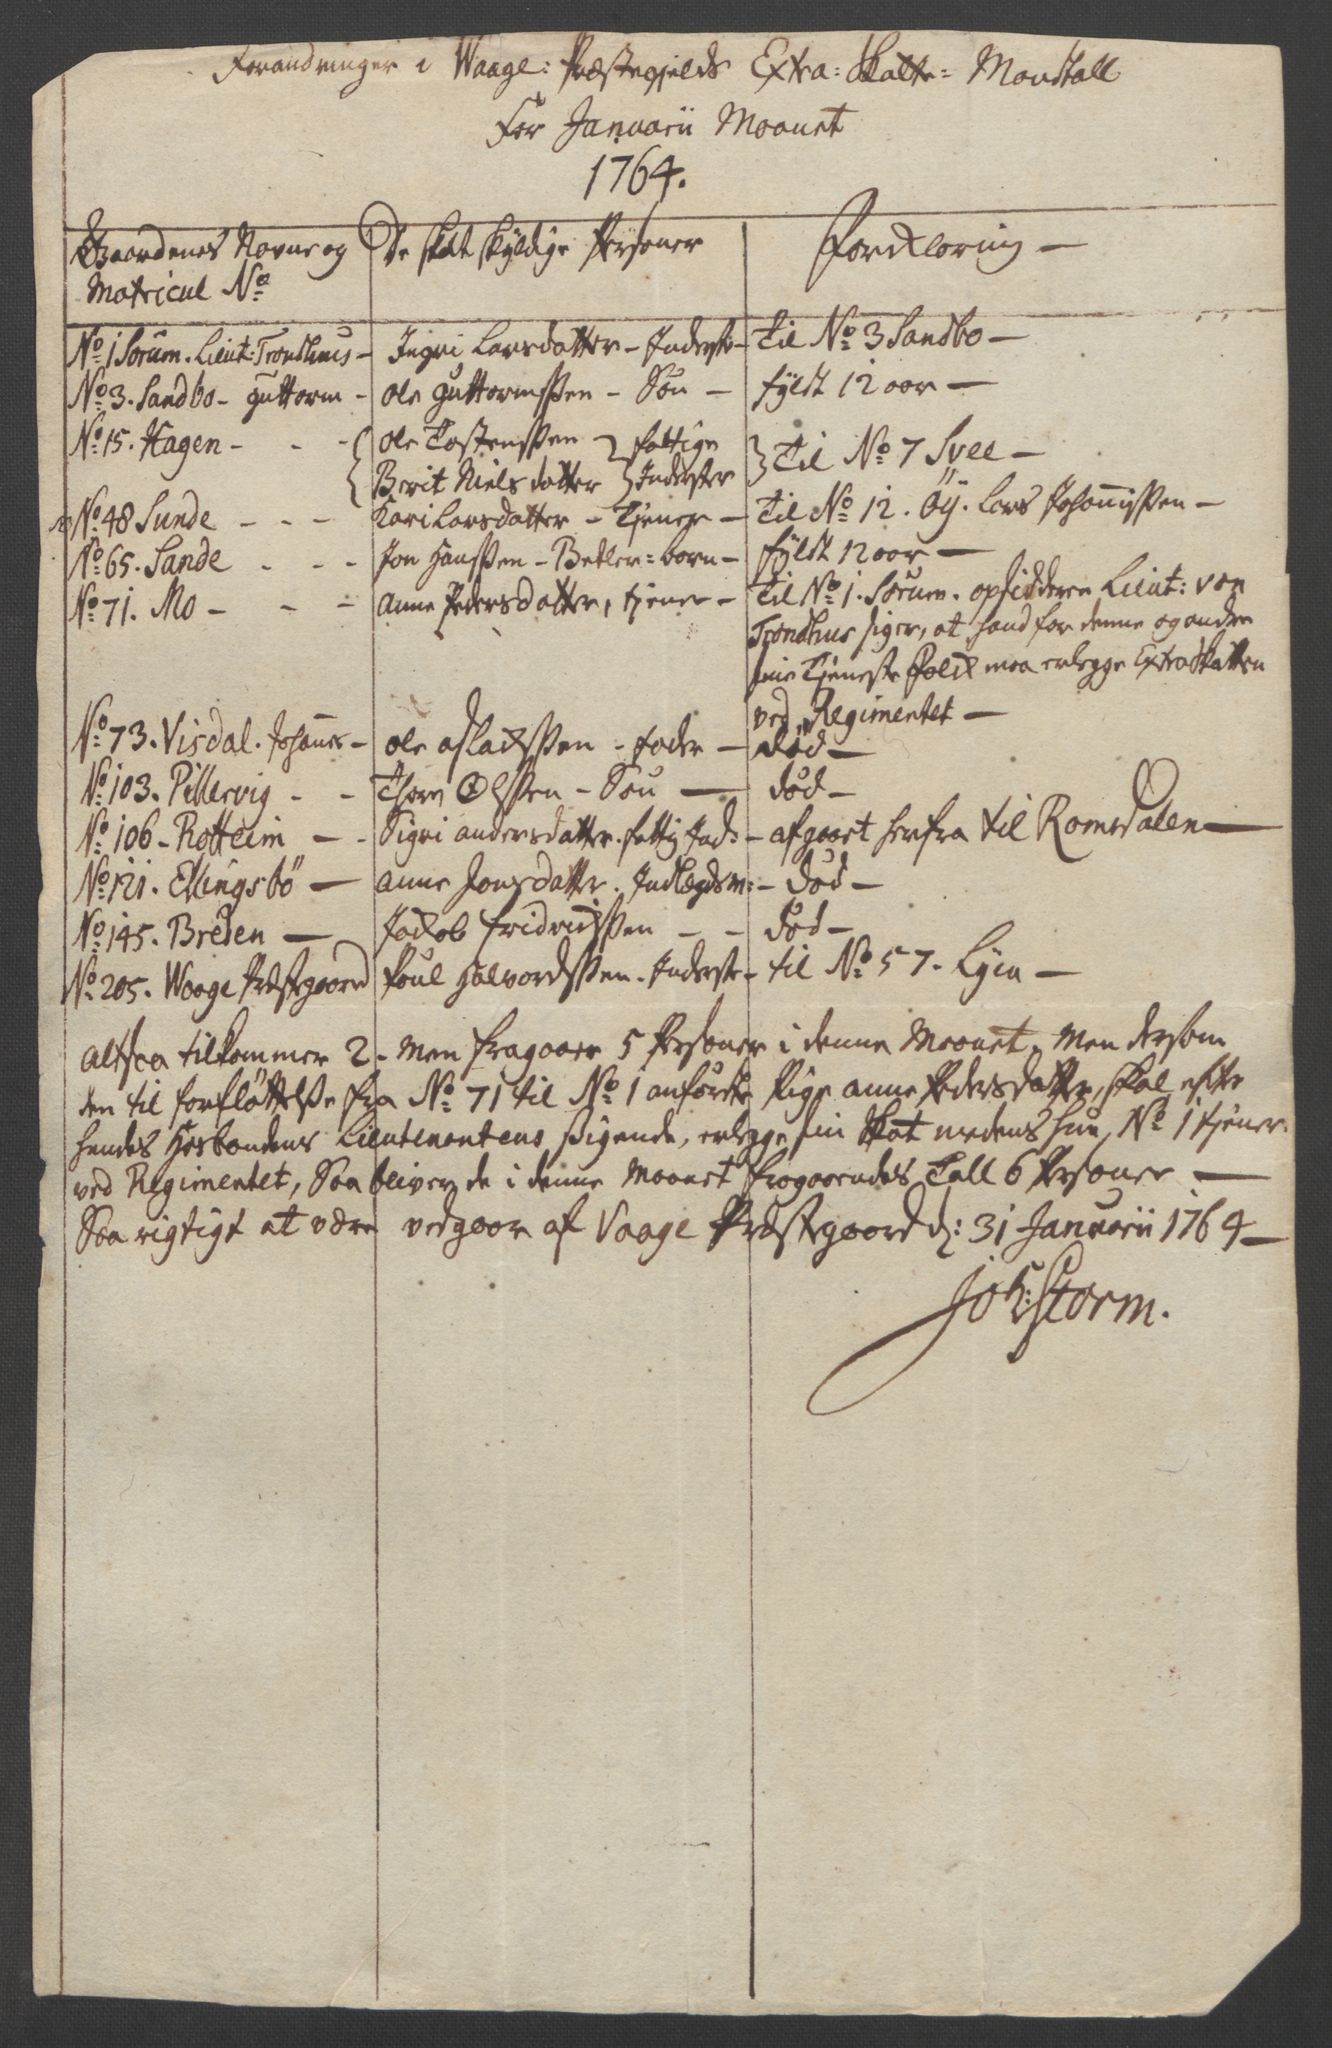 Forandringer i Waage: Præstegjelds Extra-Skatte-Mandtall
For Januarii Maanet
1764.
Gaardenes Navne og De skatskyldige Personer Forklaring —
Matricul No
No 1 Sorum. Lieut: Trondhuus — Ingri Larsdatter - Inderste — Til No 3 Sandbo —
No 3. Sandbo - Guttorm — Ole Guttormssen - Søn — fyldt 12 aar —
No 15. Hagen - - - { Ole Tostenssen } fattige } Til No 7 Svee —
Berit Nielsdatter } Inderster
No 48 Sunde - - - Kari Larsdatter - Tjener — Til No 12. Öy. Lars Johannissen —
No 65. Sande - - - Jon Hanssen - Betler-barn — fyldt 12 aar —
No 71. Mo - - - Anne Pedersdatter, tjener — Til No 1. Sorum. opsidderen Lieut: von
Trondhus siger, at hand for denne og andre
sine Tjeneste Folck maa erlegge Extra Skatten
ved Regimentet —
No 73. Visdal. Johannes — Ole Aslackssen - fader — død —
No 103. Pillervig - - Thore Olssen - Søn — død —
No 106 - Rotteim — - Sigri Andersdatter fattig Ind: — afgaaet herfra til Romsdalen —
No 121. Ellingsbö — Anne Jonsdatter. Indlægdsm: — død —
No 145. Breden — Jackob Fridrichssen - - død —
No 205. Waage Præstegaard Poul Halvordssen. Inderste — til No 57. Lyen —
Altsaa tilkommer 2. Men fragaaer 5 Personer i denne Maanet. Men dersom
den til forflöttelse fra No 71 til No 1 anførte Pige Anne Pedersdatter, skal efter
hendes Hosbondens Lieutenantens sigende, erlegge sin Skat medens hun No 1 tjener
ved Regimentet, Saa bliver de i denne Maanet fragaaendes Tall 6 Personer —
Saa rigtigt at være vedgaar af Vaage Præstegaard d: 31 Januarii 1764 —
Joh: Storm.